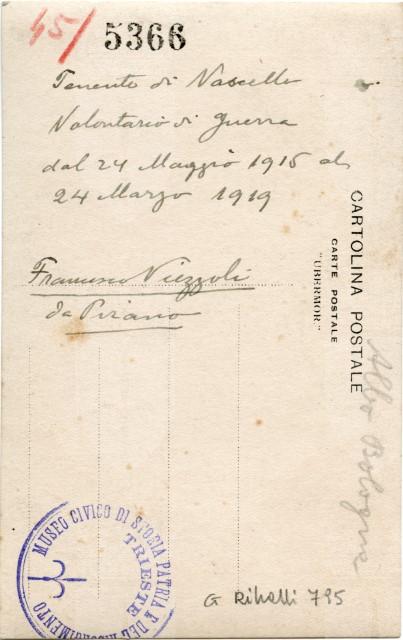 45/ 5366
Tenente di Vascello
Volontario di guerra
dal 24 Maggio 1915 al
24 Marzo 1919
Francesco Viezzoli
da Pirano
CARTOLINA POSTALE
CARTE POSTALE
"UBERMOR."
Albo Bologna
MUSEO CIVICO DI STORIA PATRIA E DEL RISORGIMENTO
TRIESTE
G 795